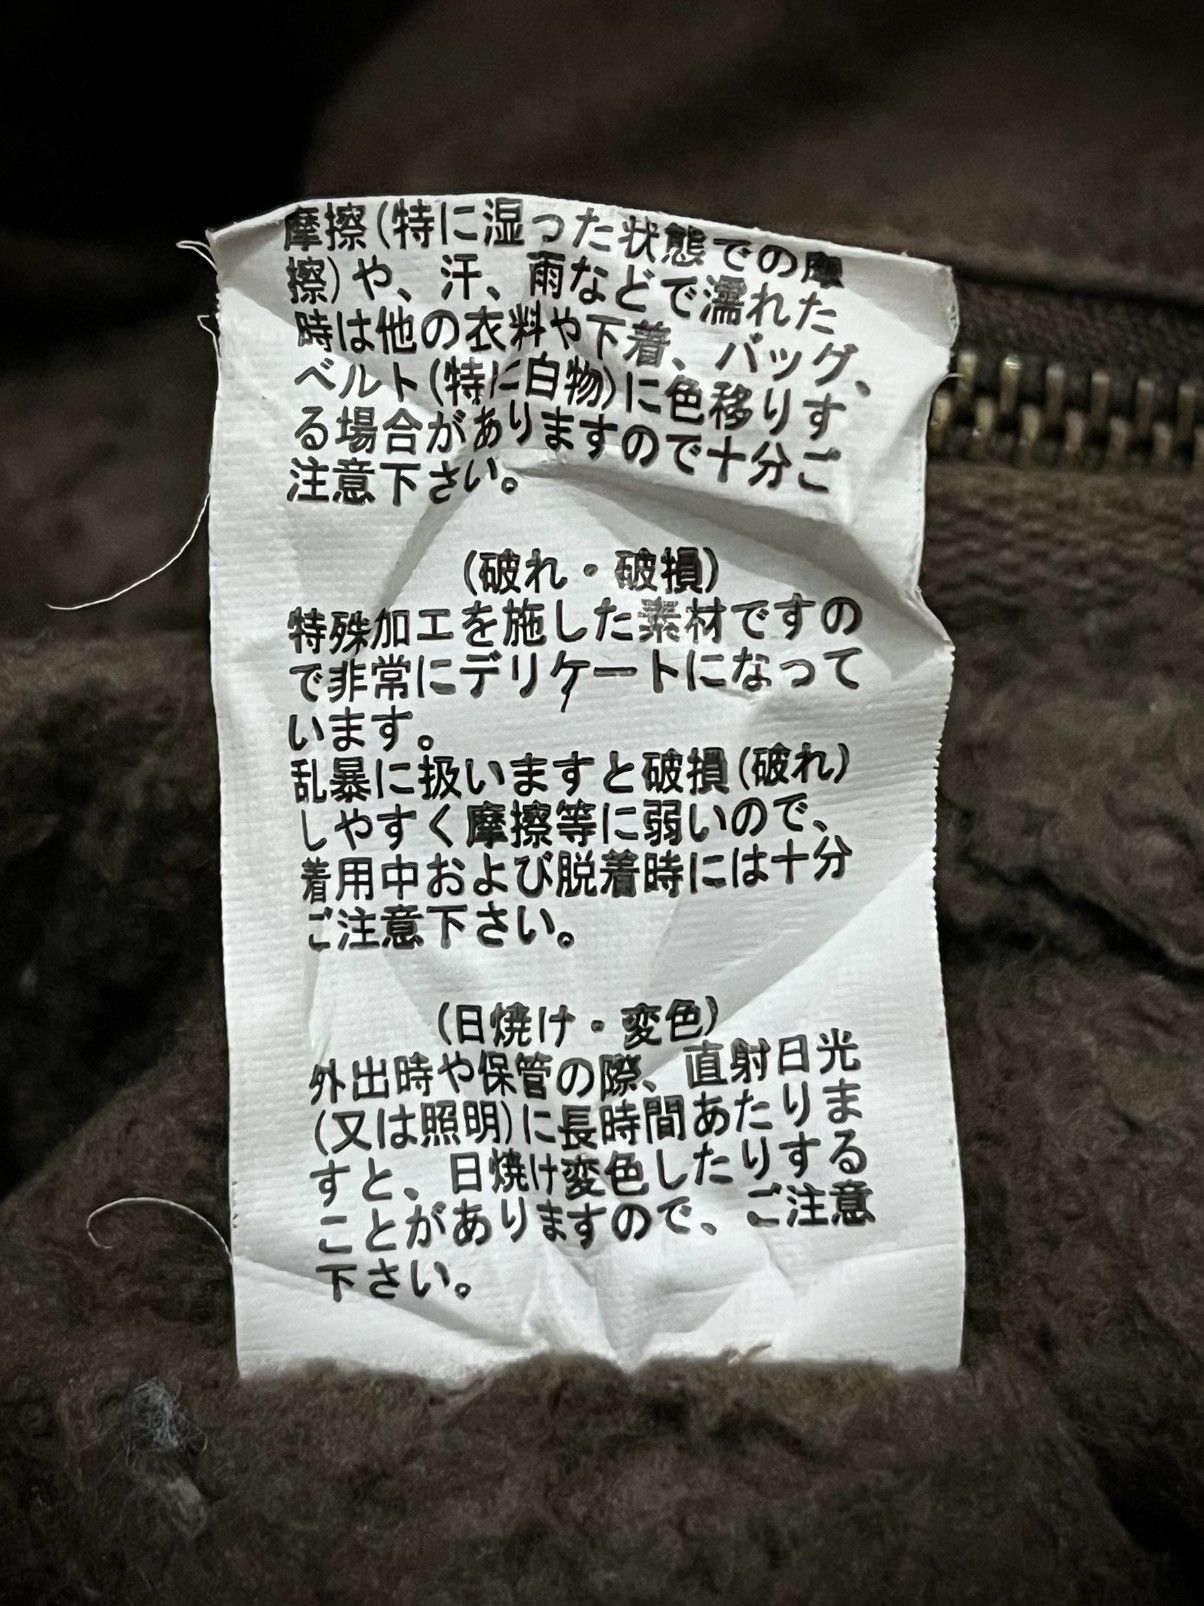 摩擦(特に湿った状態での摩
擦)や、汗、雨などで濡れた
時は他の衣料や下着、バッグ、
ベルト(特に白物)に色移りす
る場合がありますので十分ご
注意下さい。
(破れ・破損)
特殊加工を施した素材ですの
で非常にデリケートになって
います。
乱暴に扱いますと破損(破れ)
しやすく摩擦等に弱いので、
着用中および脱着時には十分
ご注意下さい。
(日焼け・変色)
外出時や保管の際、直射日光
(又は照明)に長時間あたりま
すと、日焼け変色したりする
ことがありますので、ご注意
下さい。